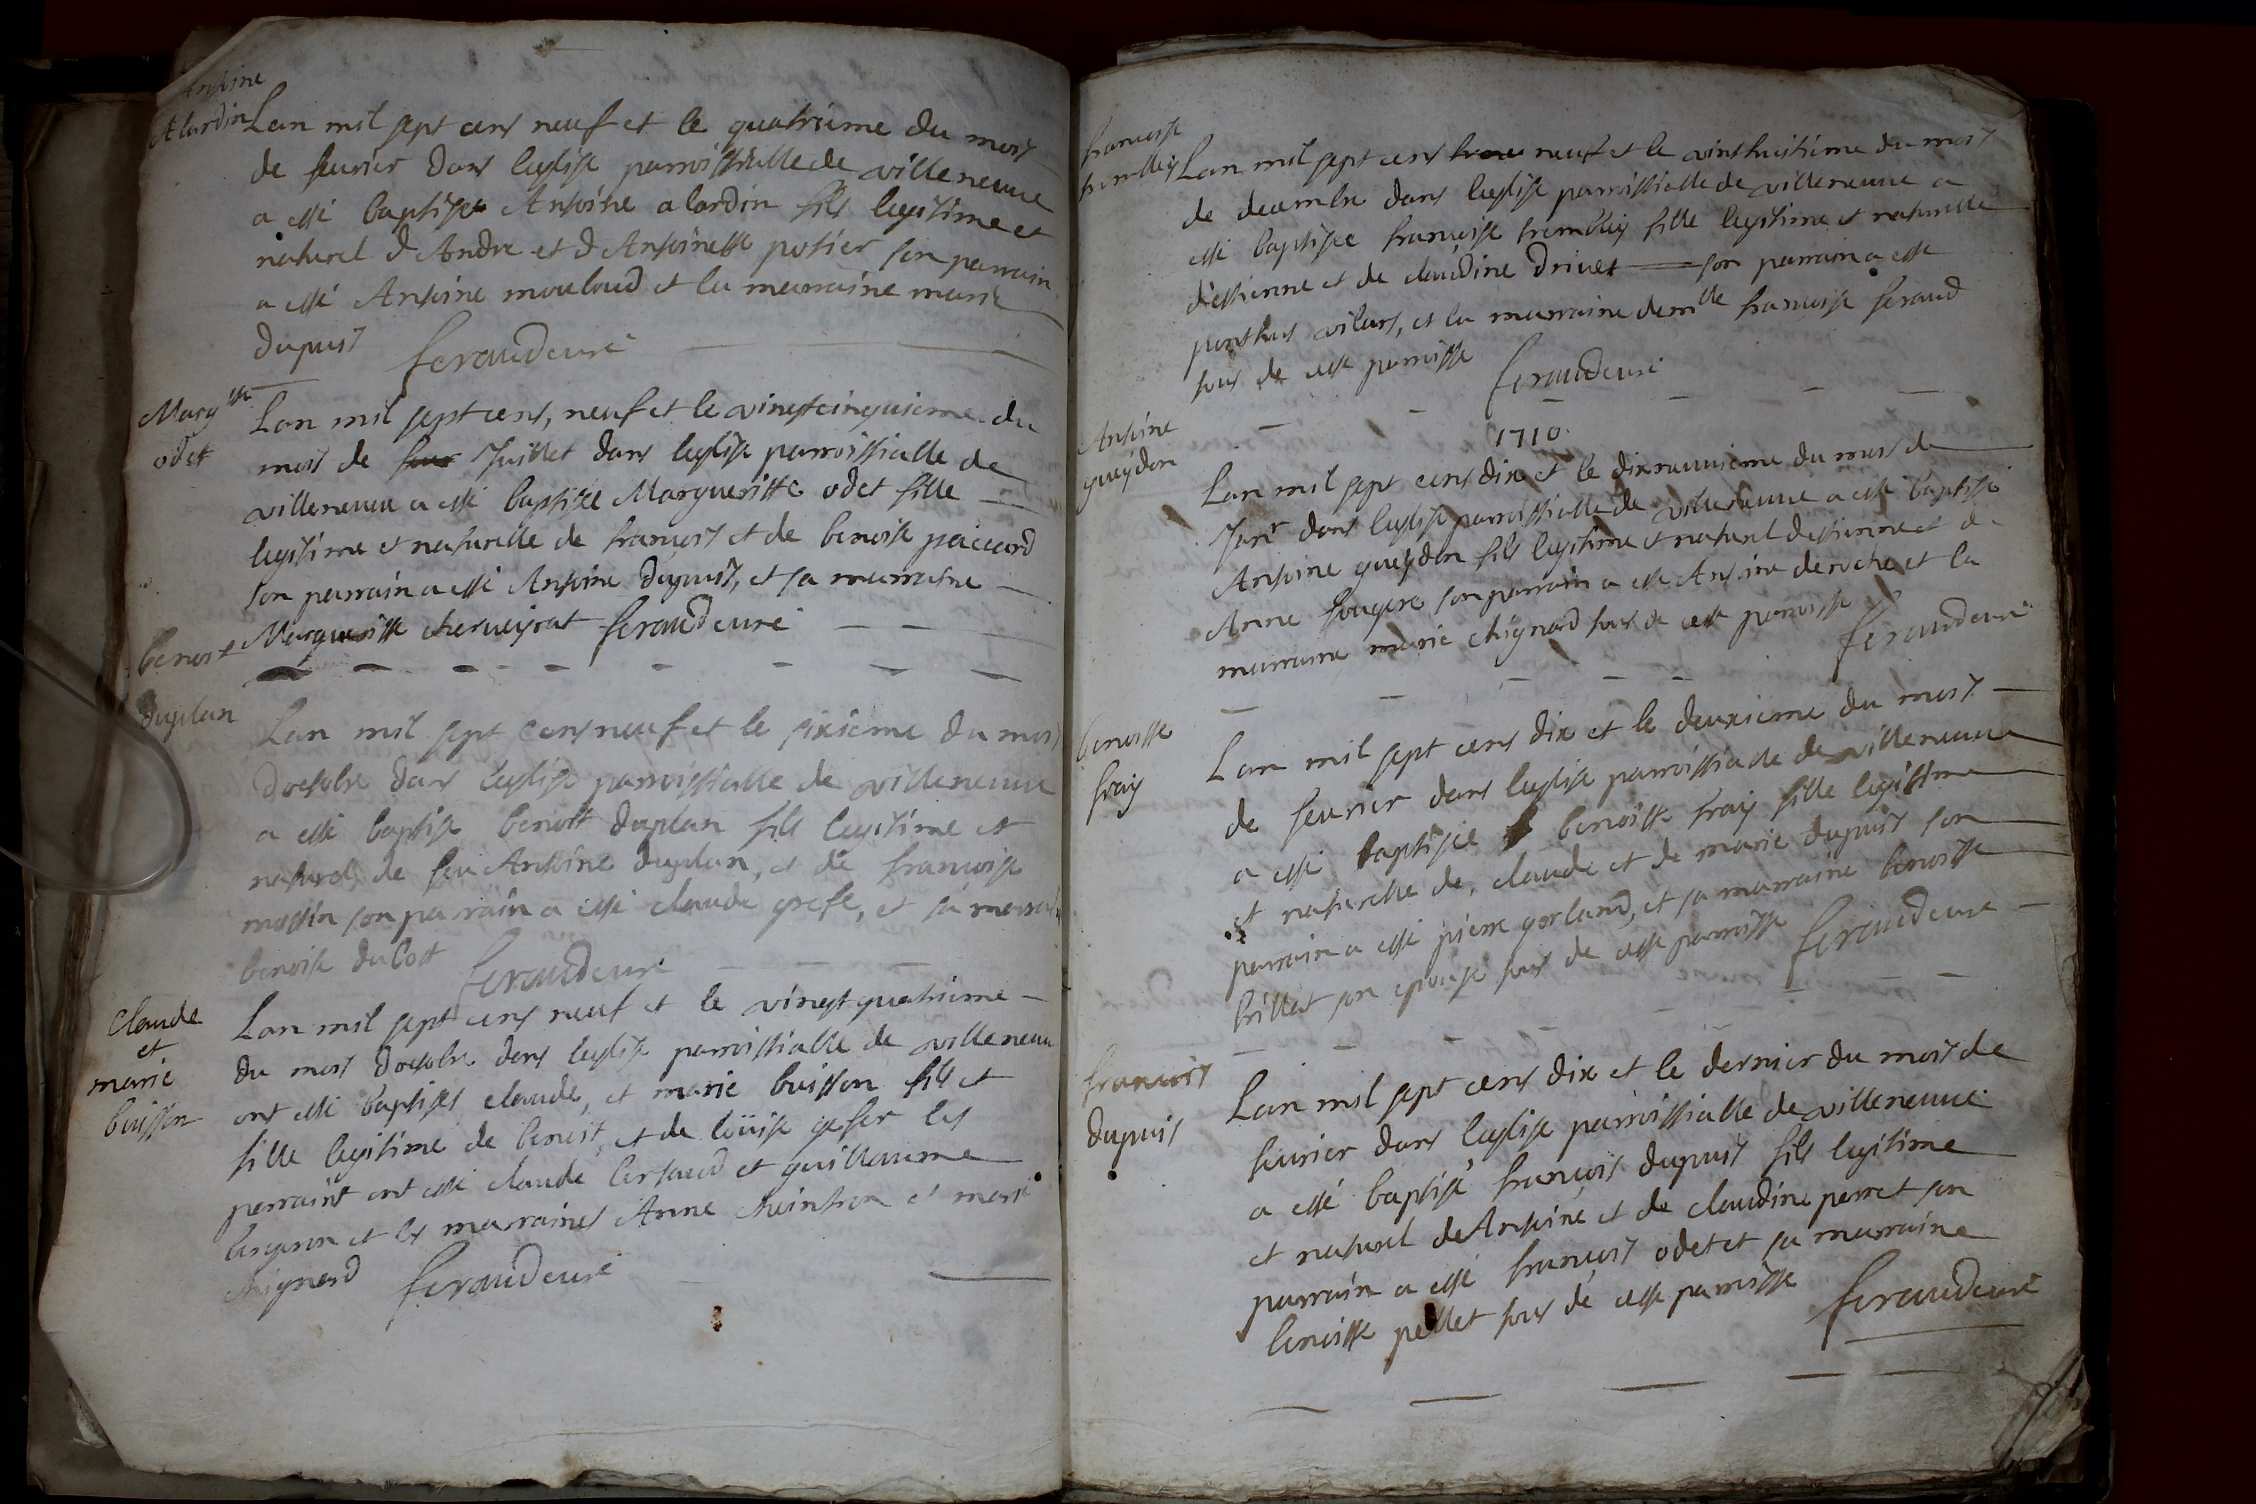 Antoine
Alardin
Lan mil sept cens neuf et le quatrieme du mois
de feurier dans leglise parroissialle de villeneuue
a esté baptise Antoine alardin fils legitime et
naturel d'Andre et d'Antoinette potier son parrain
a esté Antoine mouloud et la marraine marie
dupuis feraud curé
Marg.tte
odet
Lan mil sept cens, neuf et le vingtcinquieme du
mois de Juillet dans leglise parroissialle de
villeneuue a esté baptisee Margueritte odet fille
legitime et naturelle de francois et de benoise paccard
son parrain a esté Antoine Dupuis, et sa marraine
Margueritte cherueyrat feraud curé
benoist
duplan
Lan mil sept cens neuf et le sixieme du mois
doctobre dans leglise parroissialle de villeneuue
a esté baptise benoist duplan fils legitime et
naturel de feu Antoine duplan, et de francoise
massin son parrain a esté claude grefe, et sa marraine
benoise du Cost feraud curé
Claude
et
marie
buisson
Lan mil sept cens neuf et le vingt quatrieme
du mois doctobre dans leglise parroissialle de villeneuue
ont esté baptises claude, et marie buisson fils et
fille legitime de benoist, et de loüise gefer les
parrains ont esté claude bertaud et guillaume
bergeron et les marraines Anne cheintron et marie
chignard feraud curé
francoise
trembley
Lan mil sept cens neuf et le vinthuitieme du mois
de decembre dans leglise parroissialle de villeneuue a
esté baptisee francoise trembley fille legitime et naturelle
d'estienne et de claudine Driuet son parrain a esté
ponthus vilars, et la marraine dem.lle francoise feraud
tous de cette parroisse feraud curé
1710.
Antoine
gueydon
Lan mil sept cens dix et le dixneuuieme du mois de
Janr dans leglise parroissialle de villeneuue a esté baptise
Antoine gueydon fils legitime et naturel destienne et de
Anne fougere son parrain a esté Antoine deroche et la
marraine marie chignard tous de cette parroisse
feraud curé
benoitte
fray
Lan mil sept cens dix et le deuxieme du mois
de feurier dans leglise parroissialle de villeneuue
a esté baptisee benoitte fray fille legittime
et naturelle de claude et de marie dupuis son
parrain a esté pierre gorland, et sa marraine benoitte
brillat son epouse tous de cette parroisse feraud curé
francois
dupuis
Lan mil sept cens dix et le dernier du mois de
feurier dans leglise parroissialle de villeneuue
a esté baptisé francois dupuis fils legitime
et naturel de Antoine et de claudine perret son
parrain a esté francois odet et sa marraine
benoitte pellet tous de cette parroisse feraud curé